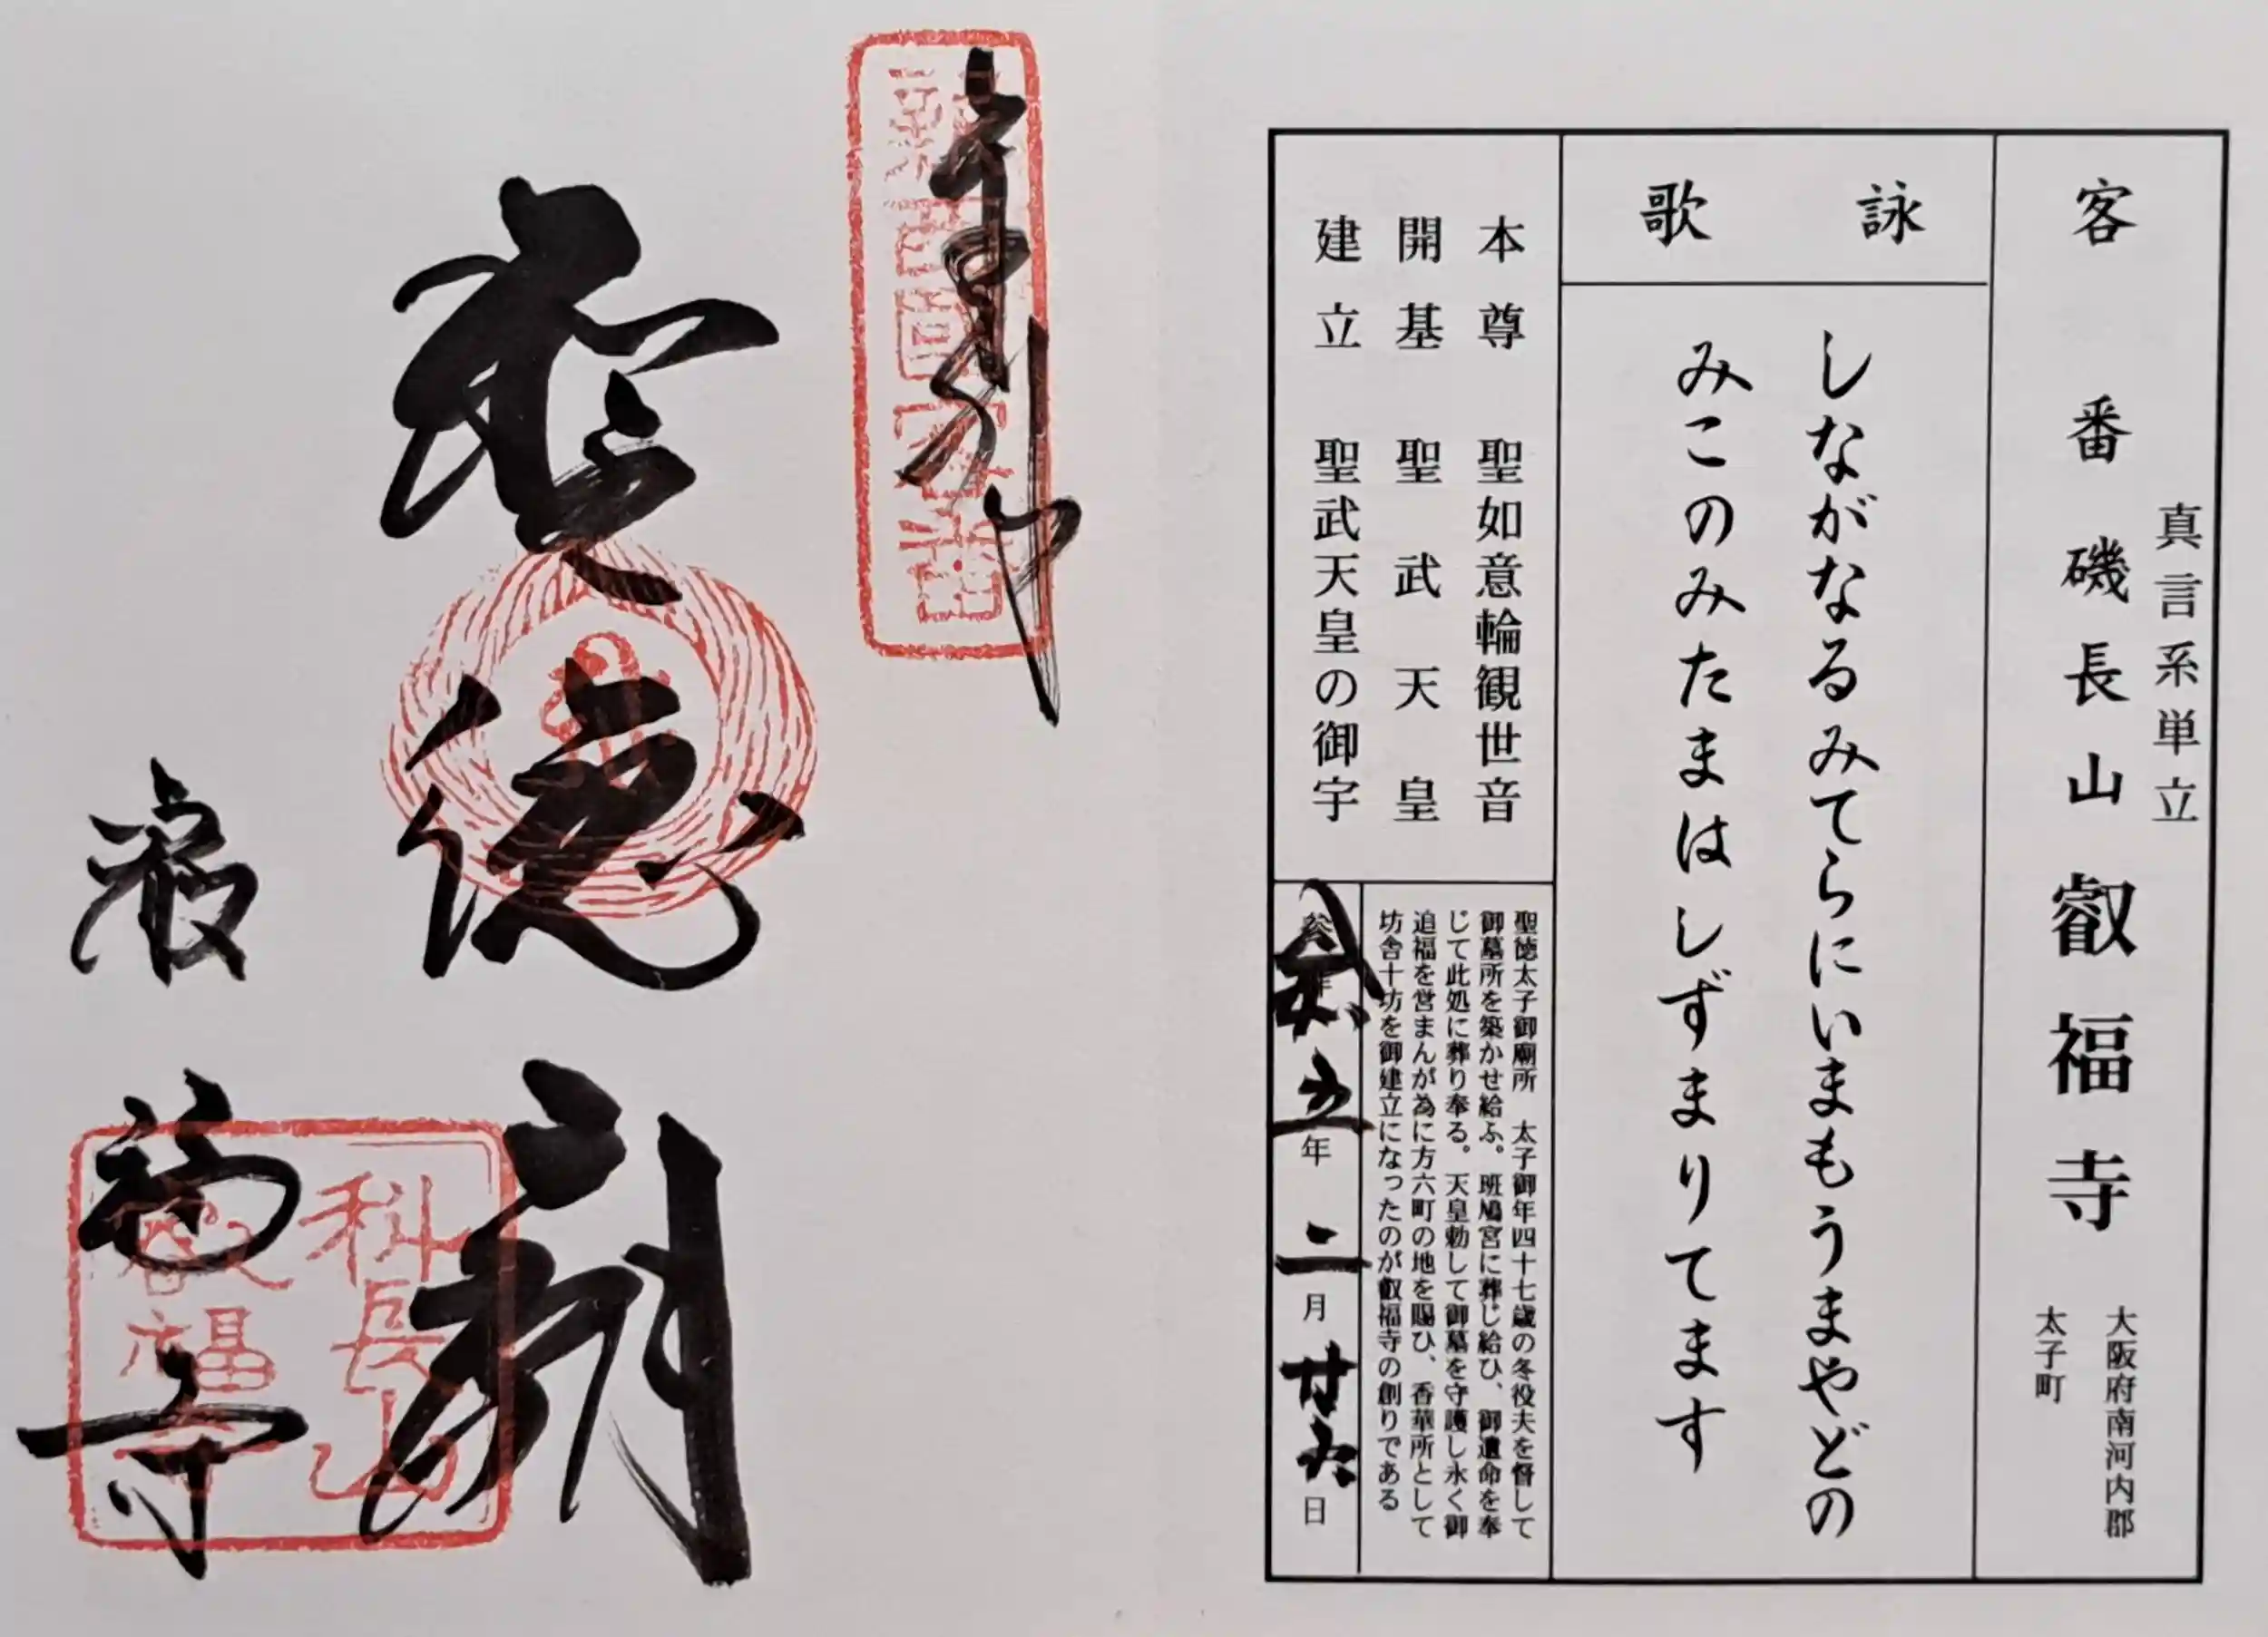 真言系単立
客番 磯長山 叡福寺
大阪府南河内郡
太子町
詠歌
しながなるみてらにいまもうまやどの
みこのみたまはしずまりてます
本尊 聖如意輪観世音
開基 聖武天皇
建立 聖武天皇の御宇
聖徳太子御廟所 太子御年四十七歳の冬役夫を督して
御墓所を築かせ給ふ。班鳩宮に葬じ給ひ、御遺命を奉
じて此処に葬り奉る。天皇勅して御墓を守護し永く御
追福を営まんが為に方六町の地を賜ひ、香華所として
坊舎十坊を御建立になったのが叡福寺の創りである
五年二月廿六日
奉拝
聖徳廟
叡福寺
科長山
叡福寺